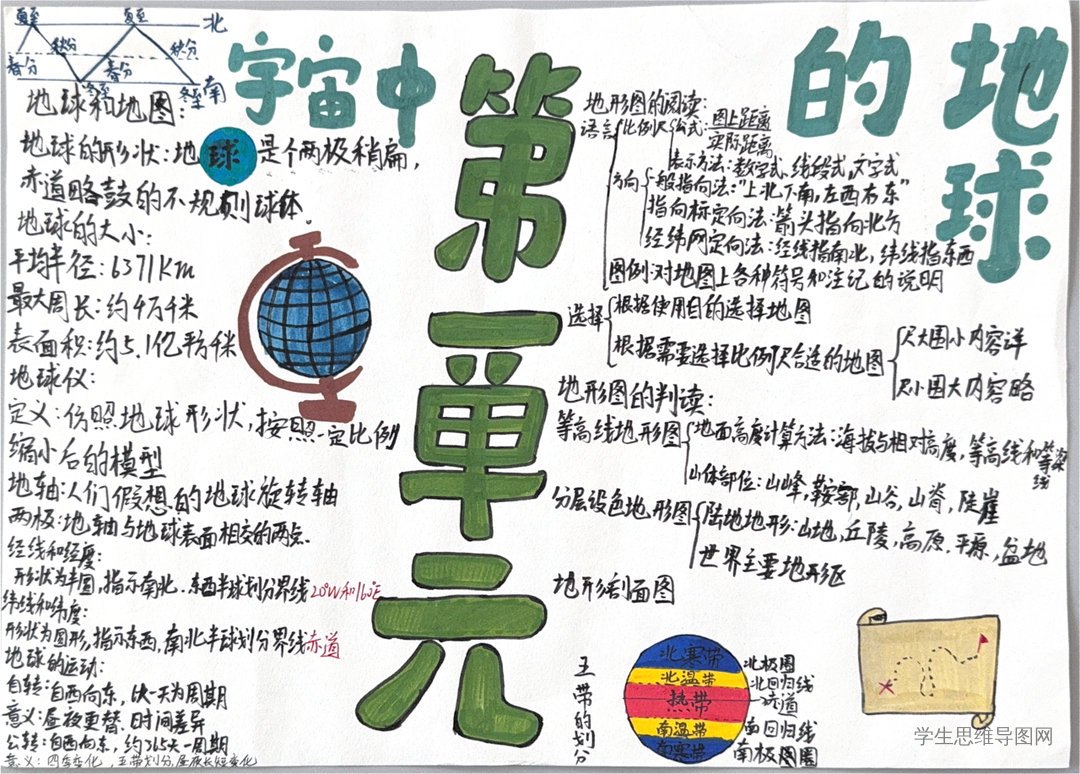 宇宙中的地球
第一单元
夏至 夏至 北
秋分 秋分
春分 春分
冬至 冬至 南
地球和地图:
地球的形状:地球是个两极稍扁,
赤道略鼓的不规则球体.
地球的大小:
平均半径:6371Km
最大周长:约4万千米
表面积:约5.1亿平方千米
地球仪:
定义:仿照地球形状,按照一定比例
缩小后的模型
地轴:人们假想的地球旋转轴
两极:地轴与地球表面相交的两点.
经线和经度:
形状为半圆,指示南北.东西半球划分界线20°W和160°E
纬线和纬度:
形状为圆形,指示东西,南北半球划分界线赤道
地球的运动:
自转:自西向东,以一天为周期
意义:昼夜更替.时间差异
公转:自西向东,约365天一周期
意义:四季变化,五带划分,昼夜长短变化
地形图的阅读:
语言
比例尺
公式:图上距离
实际距离
表示方法:数字式,线段式,文字式
方向
一般指向法:"上北下南,左西右东"
指向标定向法:箭头指向北方
经纬网定向法:经线指南北,纬线指东西
图例:对地图上各种符号和注记的说明
选择
根据使用目的选择地图
根据需要选择比例尺合适的地图
尺大图小内容详
尺小图大内容略
地形图的判读:
等高线地形图
地面高度计算方法:海拔与相对高度,等高线和等深线
山体部位:山峰,鞍部,山谷,山脊,陡崖
分层设色地形图
陆地地形:山地,丘陵,高原.平原,盆地
世界主要地形区
地形剖面图
五带的划分
北寒带
北温带
热带
南温带
南寒带
北极圈
北回归线
赤道
南回归线
南极圈
学生思维导图网